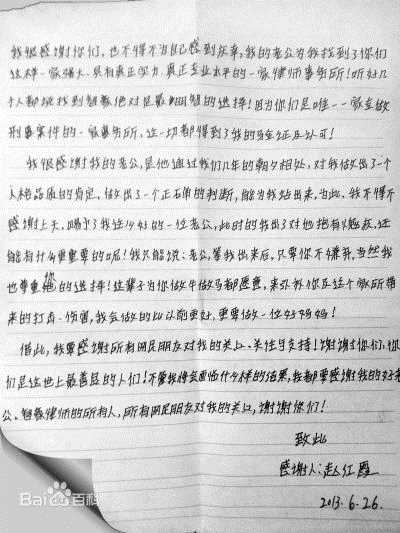 我很感谢你们，也不得不为自己感到庆幸，我的老公为我找到了你们
这样一家强大、具有真正实力、真正专业水平的一家律师事务所！听好几
个人都说找到智敏他对是最明智的选择！因为你们是唯一一家专做
刑事案件的一家事务所，这一切都得到了我的验证及认可！
我很感谢我的老公，是他通过我们几年的朝夕相处，对我做出了一个
人格品质的肯定，做出了一个正确的判断，能为我站出来，为此，我不得不
感谢上天，赐予了我这么好的一位老公，此时的我出了对他抱有愧疚，还
能有什么更重要的呢！我只能说：老公，等我出来后，只要你不嫌弃，当然我
也尊重你的选择！这辈子为你做牛做马都愿意，来弥补你及这个家所带
来的打击、伤害，我会做的比以前更好，更要做一位好妈妈！
借此，我要感谢所有网民朋友对我的关心、关注与支持！谢谢你们，你
们是这世上最善良的人们！不管我将会面临什么样的结果，我都要感谢我的好老
公、智敏律师的所有人，所有网民朋友对我的关心，谢谢你们！
致此
感谢人：赵红霞
2013.6.26.
Bai百科